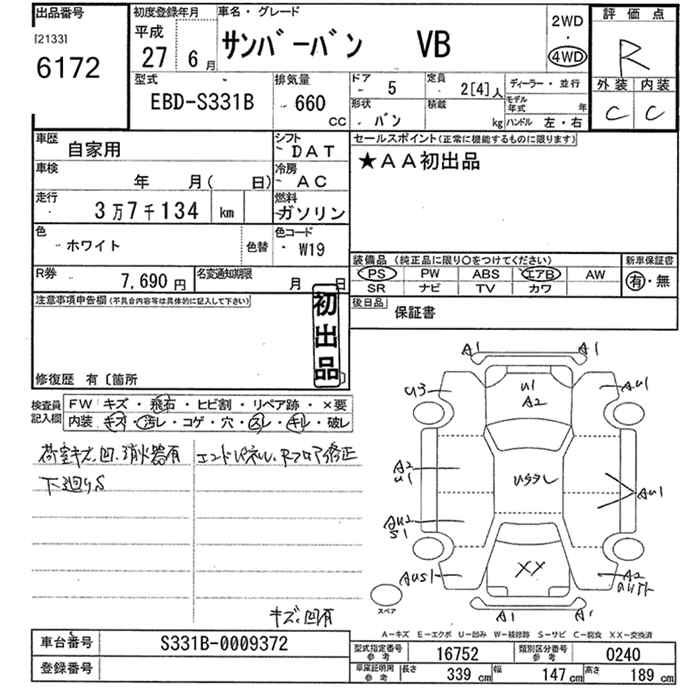 出品番号
[2133]
6172
初度登録年月
平成
27 6月
車名・グレード
サンバーバン VB
2WD
・
4WD
評価点
R
外装 内装
C C
型式
EBD-S331B
排気量
660
CC
ドア
5
定員
2[4]人
ディーラー・並行
形状
バン
積載
kg
モデル年式
年
ハンドル 左・右
車歴
自家用
シフト
DAT
セールスポイント(正常に機能するものに限ります)
★AA初出品
車検
年 月( 日)
冷房
AC
走行
3万7千134 km
燃料
ガソリン
色
ホワイト
色替
色コード
W19
装備品 (純正品に限り○をつけてください)
新車保証書
PS PW ABS エアB AW
SR ナビ TV カワ
有・無
R券
7,690円
名変通知期限
月 日
後日品
保証書
注意事項申告欄(不具合内容等は具体的に記入して下さい)
初出品
修復歴 有〔箇所
検査員記入欄
FW キズ・飛石・ヒビ割・リペア跡・×要
内装 キズ・汚レ・コゲ・穴・スレ・キレ・破レ
荷室キズ、凹、消火器有
エンドパネル、Rフロア修正
下廻りS
キズ、凹有
A1 A1
U3
U1
A2
AU1
A2
U1
AU1
AU2
S1
AUS1
XX
A2
A1 A1
スペア
A-キズ E-エクボ U-凹み W-補修跡 S-サビ C-腐食 XX-交換済
車台番号
S331B-0009372
型式指定番号
参考
16752
類別区分番号
参考
0240
登録番号
車庫証明用
参考
長さ
339 cm
幅
147 cm
高さ
189 cm